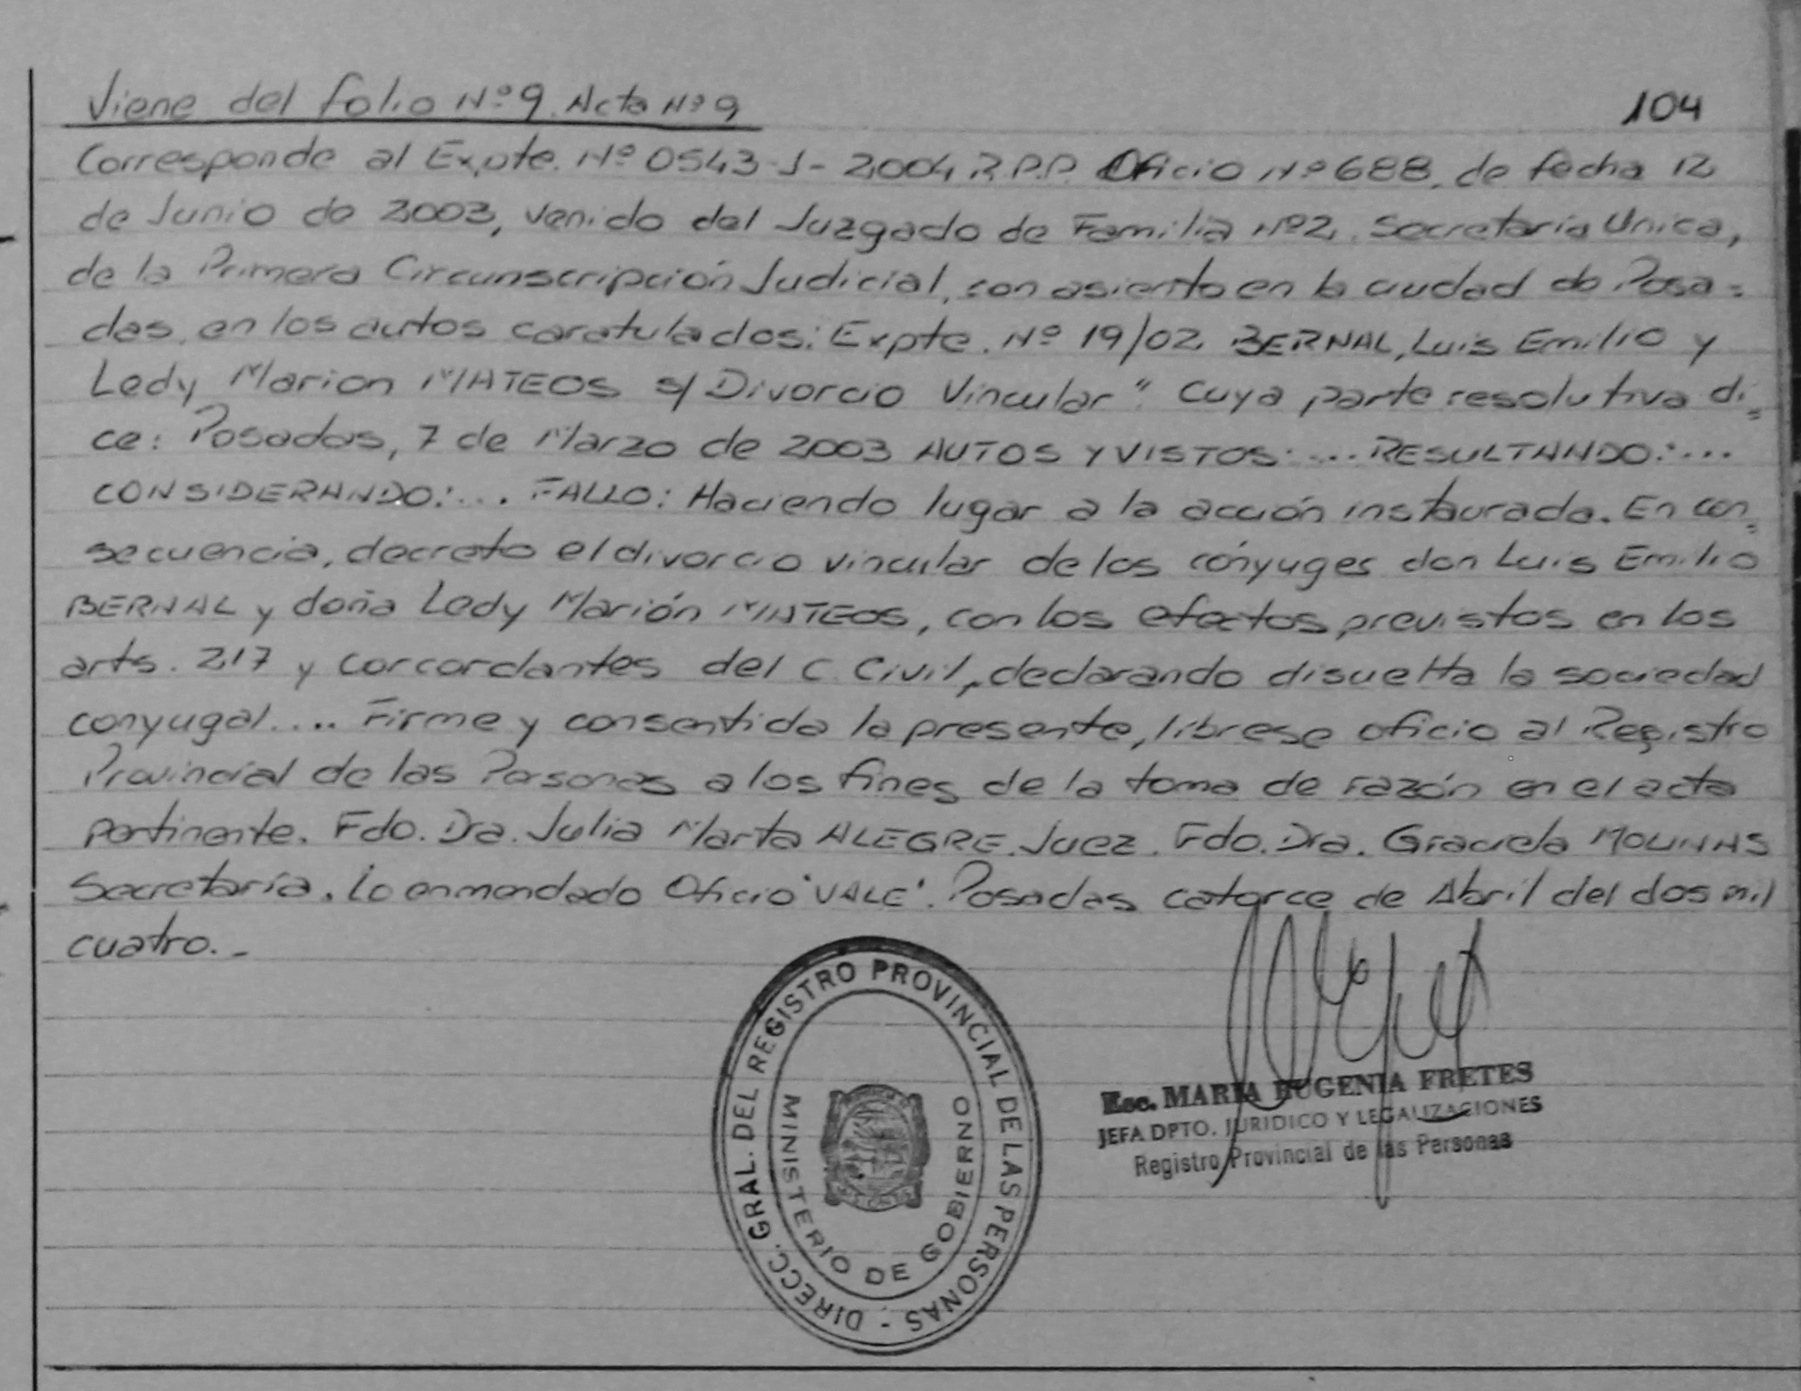 Viene del folio Nº 9. Acta Nº 9
104
Corresponde al Expte. Nº 0543-J-2004 R.P.P. Oficio Nº 688, de fecha 12
de Junio de 2003, venido del Juzgado de Familia Nº 2. Secretaría Unica,
de la Primera Circunscripción Judicial, con asiento en la ciudad de Posa=
das, en los autos caratulados: Expte. Nº 19/02 BERNAL, Luis Emilio y
Ledy Marion MATEOS s/ Divorcio Vincular". Cuya parte resolutiva di=
ce: Posadas, 7 de Marzo de 2003 AUTOS Y VISTOS: ... RESULTANDO: ...
CONSIDERANDO: ... FALLO: Haciendo lugar a la acción instaurada. En con=
secuencia, decreto el divorcio vincular de los cónyuges don Luis Emilio
BERNAL y doña Ledy Marión MATEOS, con los efectos previstos en los
arts. 217 y corcordantes del C. Civil, declarando disuelta la sociedad
conyugal .... Firme y consentida la presente, líbrese oficio al Registro
Provincial de las Personas a los fines de la toma de razón en el acta
pertinente. Fdo. Dra. Julia Marta ALEGRE. Juez. Fdo. Dra. Graciela MOLINAS
Secretaría. Lo enmendado Oficio 'VALE'. Posadas catorce de Abril del dos mil
cuatro.-
DIRECC. GRAL. DEL REGISTRO PROVINCIAL DE LAS PERSONAS -
MINISTERIO DE GOBIERNO
Esc. MARIA EUGENIA FRETES
JEFA DPTO. JURIDICO Y LEGALIZACIONES
Registro Provincial de las Personas